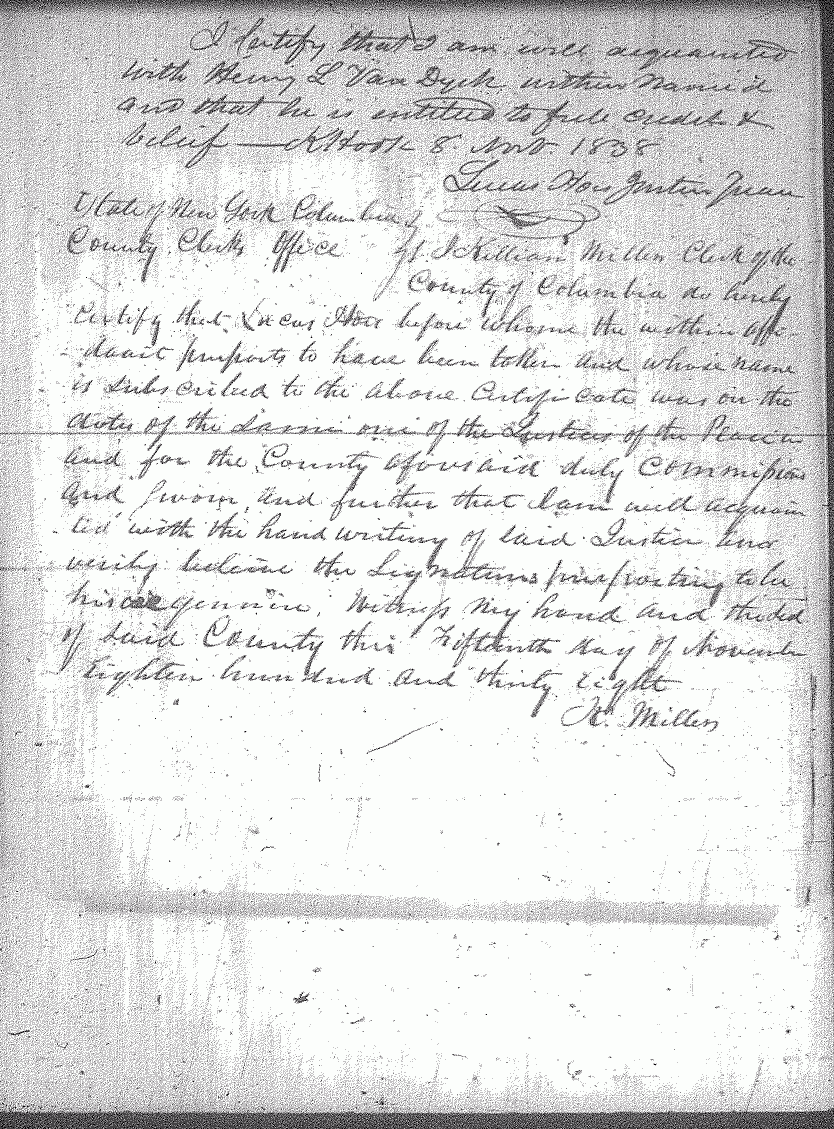 I Certify that I am well acquainted
with Henry L Van Dyck within Named
and that he is entitled to full credit &
belief — KHook 8 Novr. 1838
Lucas Hoes Justice Peace
State of New York Columbia
County Clerks Office } ss I Killian Miller Clerk of the
County of Columbia do hereby
Certify that Lucas Hoes before whome the within affi-
davit purports to have been taken and whose name
is subscribed to the above Certificate was on the
date of the same one of the Justices of the Peace in
and for the County aforesaid duly Commission
and Sworn, and further that I am well acquain
ted with the hand writing of said Justice and
verily believe the Signatures purporting to be
his genuine. Witness My hand and the Seal
of Said County this Fifteenth day of November
Eighteen hundred and thirty Eight
K. Miller